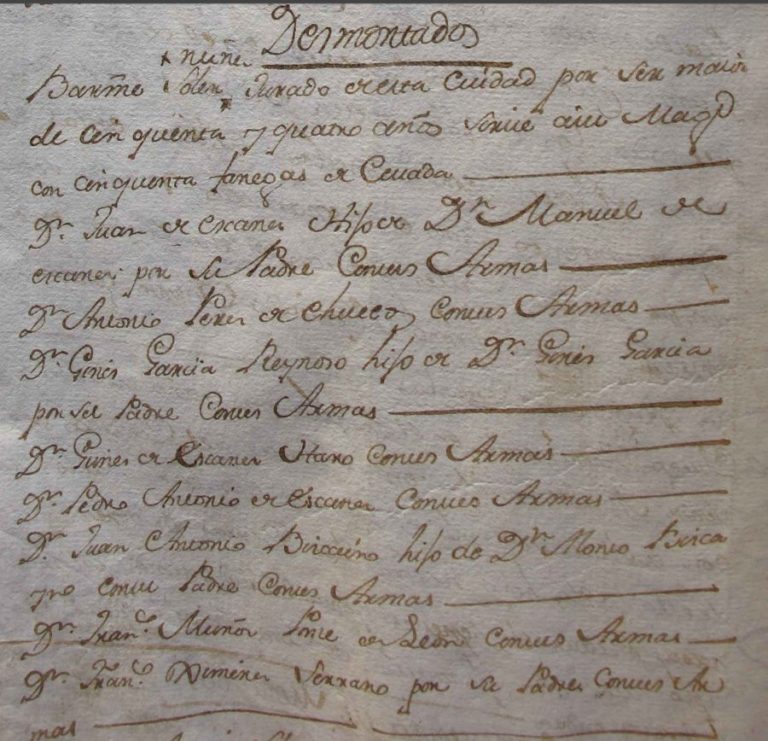 Desmontados
nuñes
Barme soler Jurado de esta Cuidad por ser maior
de cinquenta y quatro años sirue a su Magd
con cinquenta fanegas de Ceuada
Dn. Juan de escaner Hijo de Dn Manuel de
escaner por su Padre Con sus Armas
Dn Antonio Peres de Chuecos con sus Armas
Dn. Gines Garcia Reynoso hijo de Dn. Gines Garcia
por su Padre Con sus Armas
Dn. Gines de Escaner Con sus Armas
Dn. Pedro Antonio de Escaner Con sus Armas
Dn. Juan Antonio hijo de Dn
con su Padre Con sus Armas
Dn. Frano. Muños Ponce de Leon Con sus Armas
Dn. Frano. Ximenes Serrano por su Padre Con sus Ar
mas